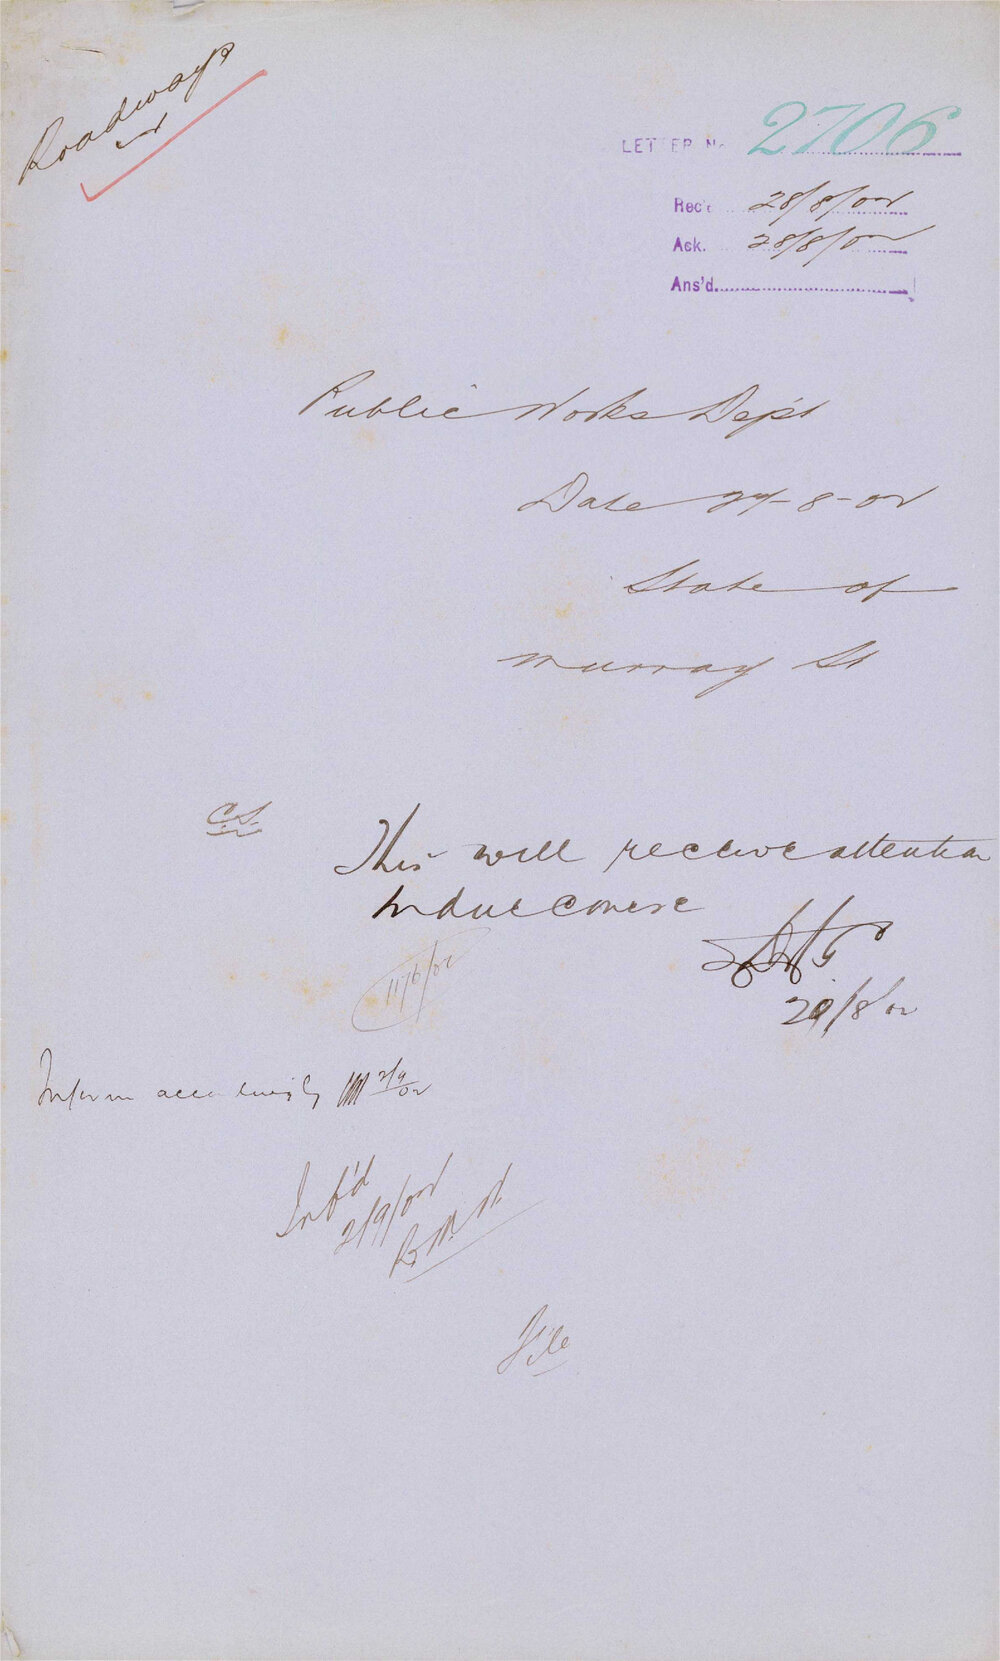 Roadways
LETTER No 2706
Rec'd 28/8/02
Ack. 28/8/02
Ans'd
Public Works Dep't
Date 27-8-02
State of
Murray St
C.S.
This will receive attention
in due course
29/8/02
1176/02
Inform accordingly 2/9/02
Inf'd
2/9/02
File